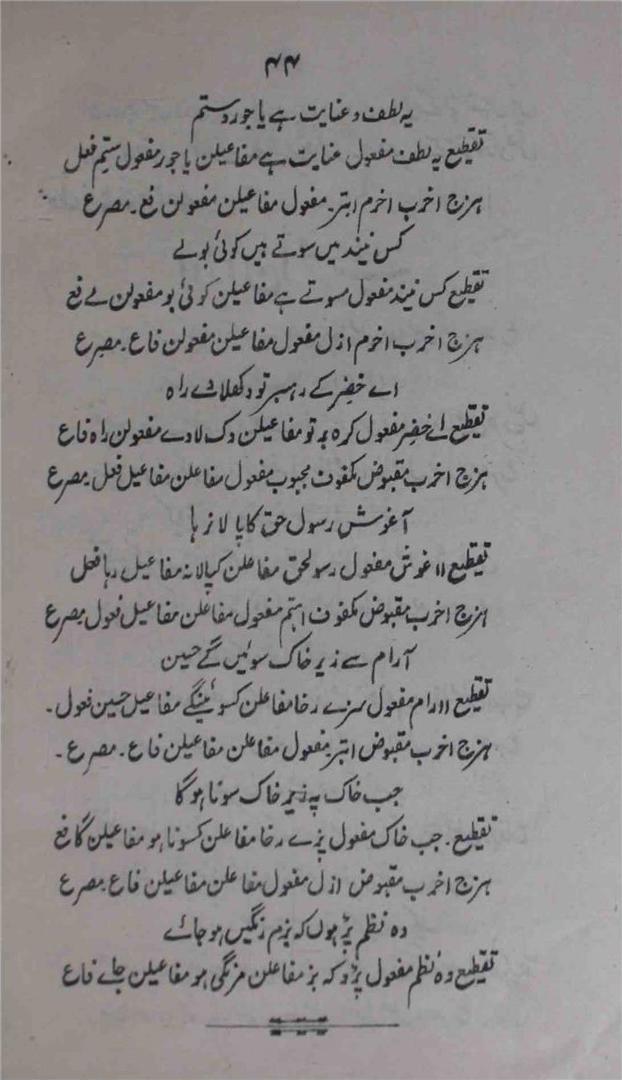 ۴۴
یہ لطف و عنایت ہے یا جور و ستم
تقطیع یہ لطف مفعول عنایت ہے مفاعیلن یا جور مفعول ستم فعل
ہزج اخرب اخرم ابتر۔ مفعول مفاعیلن مفعولن فع۔ مصرع
کس نیند میں سوتے ہیں کوئی بولے
تقطیع کس نیند مفعول مسوتے ہے مفاعیلن کوئی بو مفعولن لے فع
ہزج اخرب اخرم ازل مفعول مفاعیلن مفعولن فاع۔ مصرع
اے خضر کے رہبر تو دکھلا دے راہ
تقطیع اے خضر مفعول کرہ بر تو مفاعیلن دک لا دے مفعولن راہ فاع
ہزج اخرب مقبوض مکفوف مجبوب مفعول مفاعلن مفاعیل فعل۔ مصرع
آغوش رسول حق کا پالا نہ رہا
تقطیع ااغوش مفعول رسولحق مفاعلن کپالانہ مفاعیل رہا فعل
ہزج اخرب مقبوض مکفوف اہتم مفعول مفاعلن مفاعیل فعول مصرع
آرام سے زیر خاک سوئیں گے حسین
تقطیع اارام مفعول سزے رخا مفاعلن کسوئینگے مفاعیل حسین فعول۔
ہزج اخرب مقبوض ابتر مفعول مفاعلن مفاعیلن فاع۔ مصرع۔
جب خاک پہ زیر خاک سونا ہوگا
تقطیع۔ جب خاک مفعول پزے رخا مفاعلن کسونا ہو مفاعیلن گا فع
ہزج اخرب مقبوض ازل مفعول مفاعلن مفاعیلن فاع۔ مصرع
وہ نظم پڑہوں کہ بزم رنگیں ہو جائے
تقطیع وہ نظم مفعول پڑو کہ بز مفاعلن مرنگی ہو مفاعیلن جاے فاع